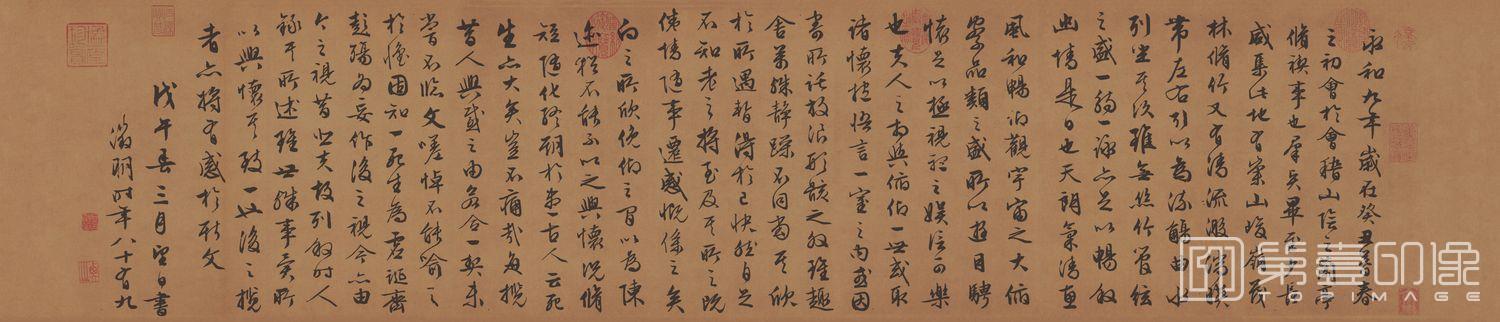 永和九年歲在癸丑暮春
之初會於會稽山陰之蘭亭
脩禊事也群賢畢至少長
咸集此地有崇山峻領茂
林脩竹又有清流激湍暎
帶左右引以為流觴曲水
列坐其次雖無絲竹管絃
之盛一觴一詠亦足以暢敘
幽情是日也天朗氣清惠
風和暢仰觀宇宙之大俯
察品類之盛所以遊目騁
懷足以極視聽之娛信可樂
也夫人之相與俯仰一世或取
諸懷抱悟言一室之內或因
寄所託放浪形骸之外雖趣
舍萬殊靜躁不同當其欣
於所遇暫得於己快然自足
不知老之將至及其所之既
倦情隨事遷感慨係之矣
向之所欣俛仰之間以為陳
迹猶不能不以之興懷況脩
短隨化終期於盡古人云死
生亦大矣豈不痛哉每攬
昔人興感之由若合一契未
嘗不臨文嗟悼不能喻之
於懷固知一死生為虛誕齊
彭殤為妄作後之視今亦由
今之視昔悲夫故列敘時人
錄其所述雖世殊事異所
以興懷其致一也後之攬
者亦將有感於斯文
戊午春三月望日書
徵明時年八十有九
第壹印像
TOPIMAGE